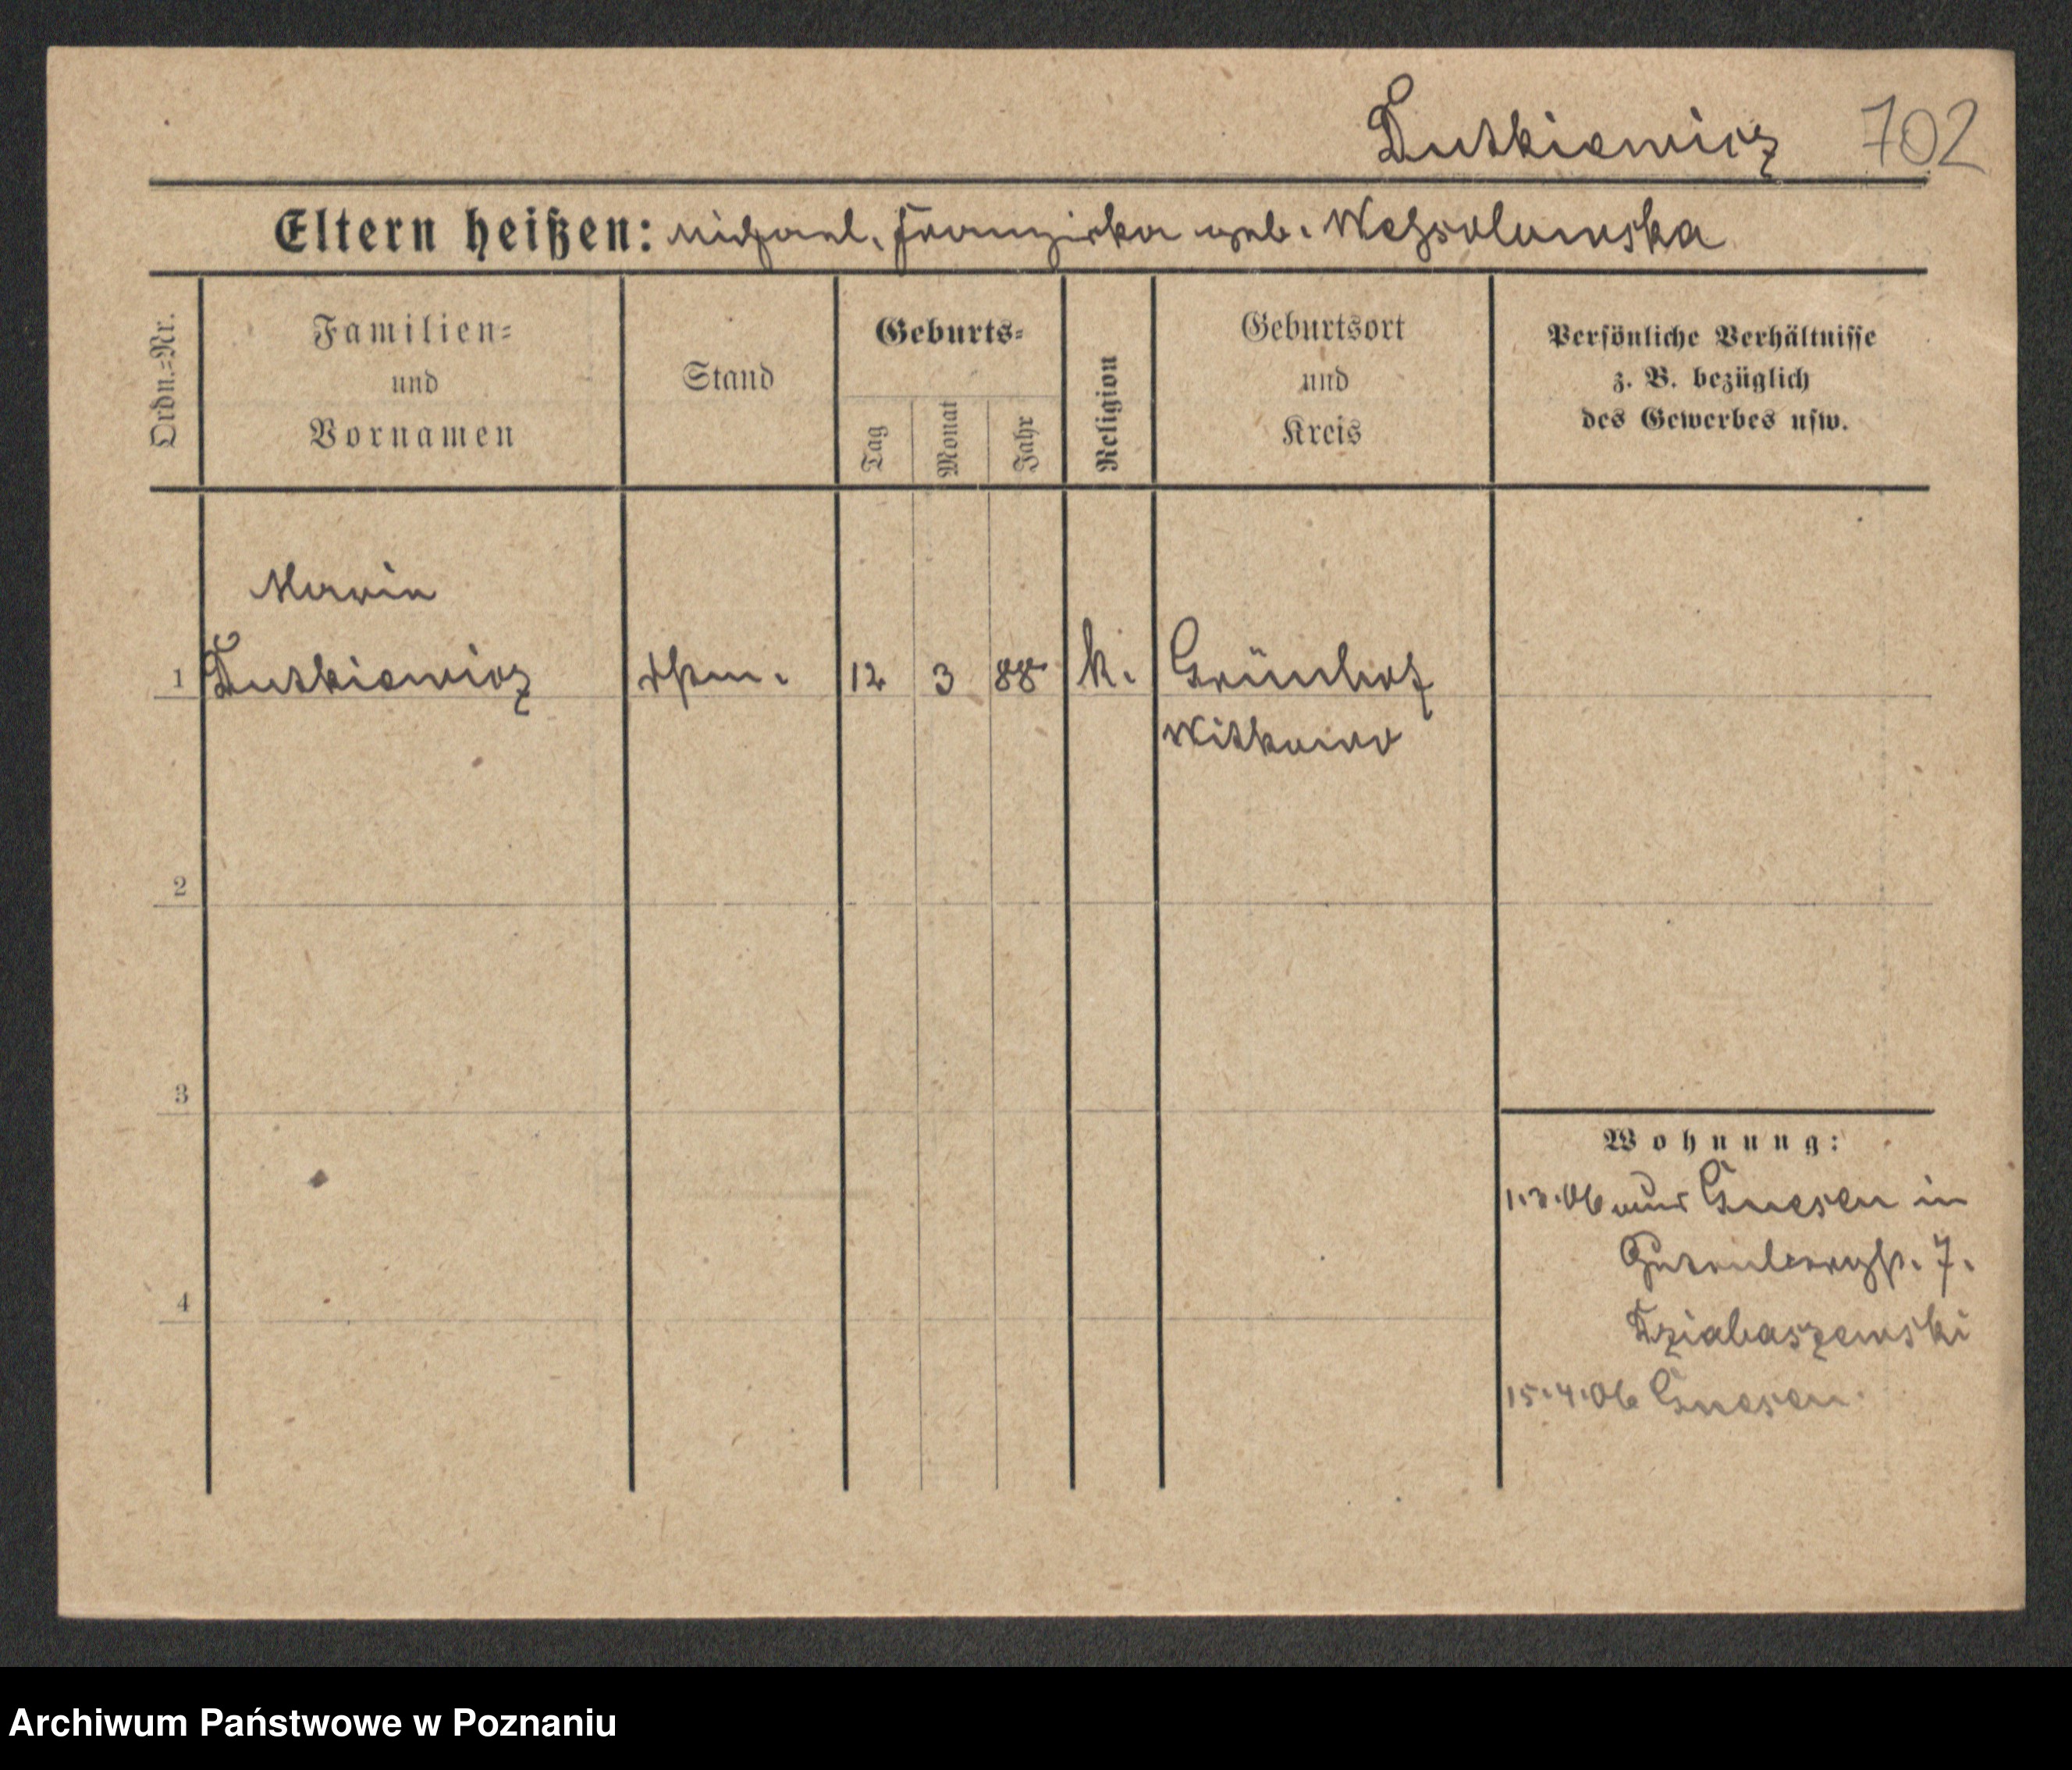 Dutkiewicz 702
Eltern heißen: Michael, Franziska geb. Wessolowska
Ordn.=Nr.
Familien=
und
Vornamen
Stand
Geburts=
Tag
Monat
Jahr
Religion
Geburtsort
und
Kreis
Persönliche Verhältnisse
z. B. bezüglich
des Gewerbes usw.
Maria
1 Dutkiewicz 12 3 88 k. Grünhof
Witkowo
2
3
4
Wohnung:
1.3.06 aus Gnesen in
Gutenbergst. 7.
Dziabaszewski
15.4.06 Gnesen.
Archiwum Państwowe w Poznaniu